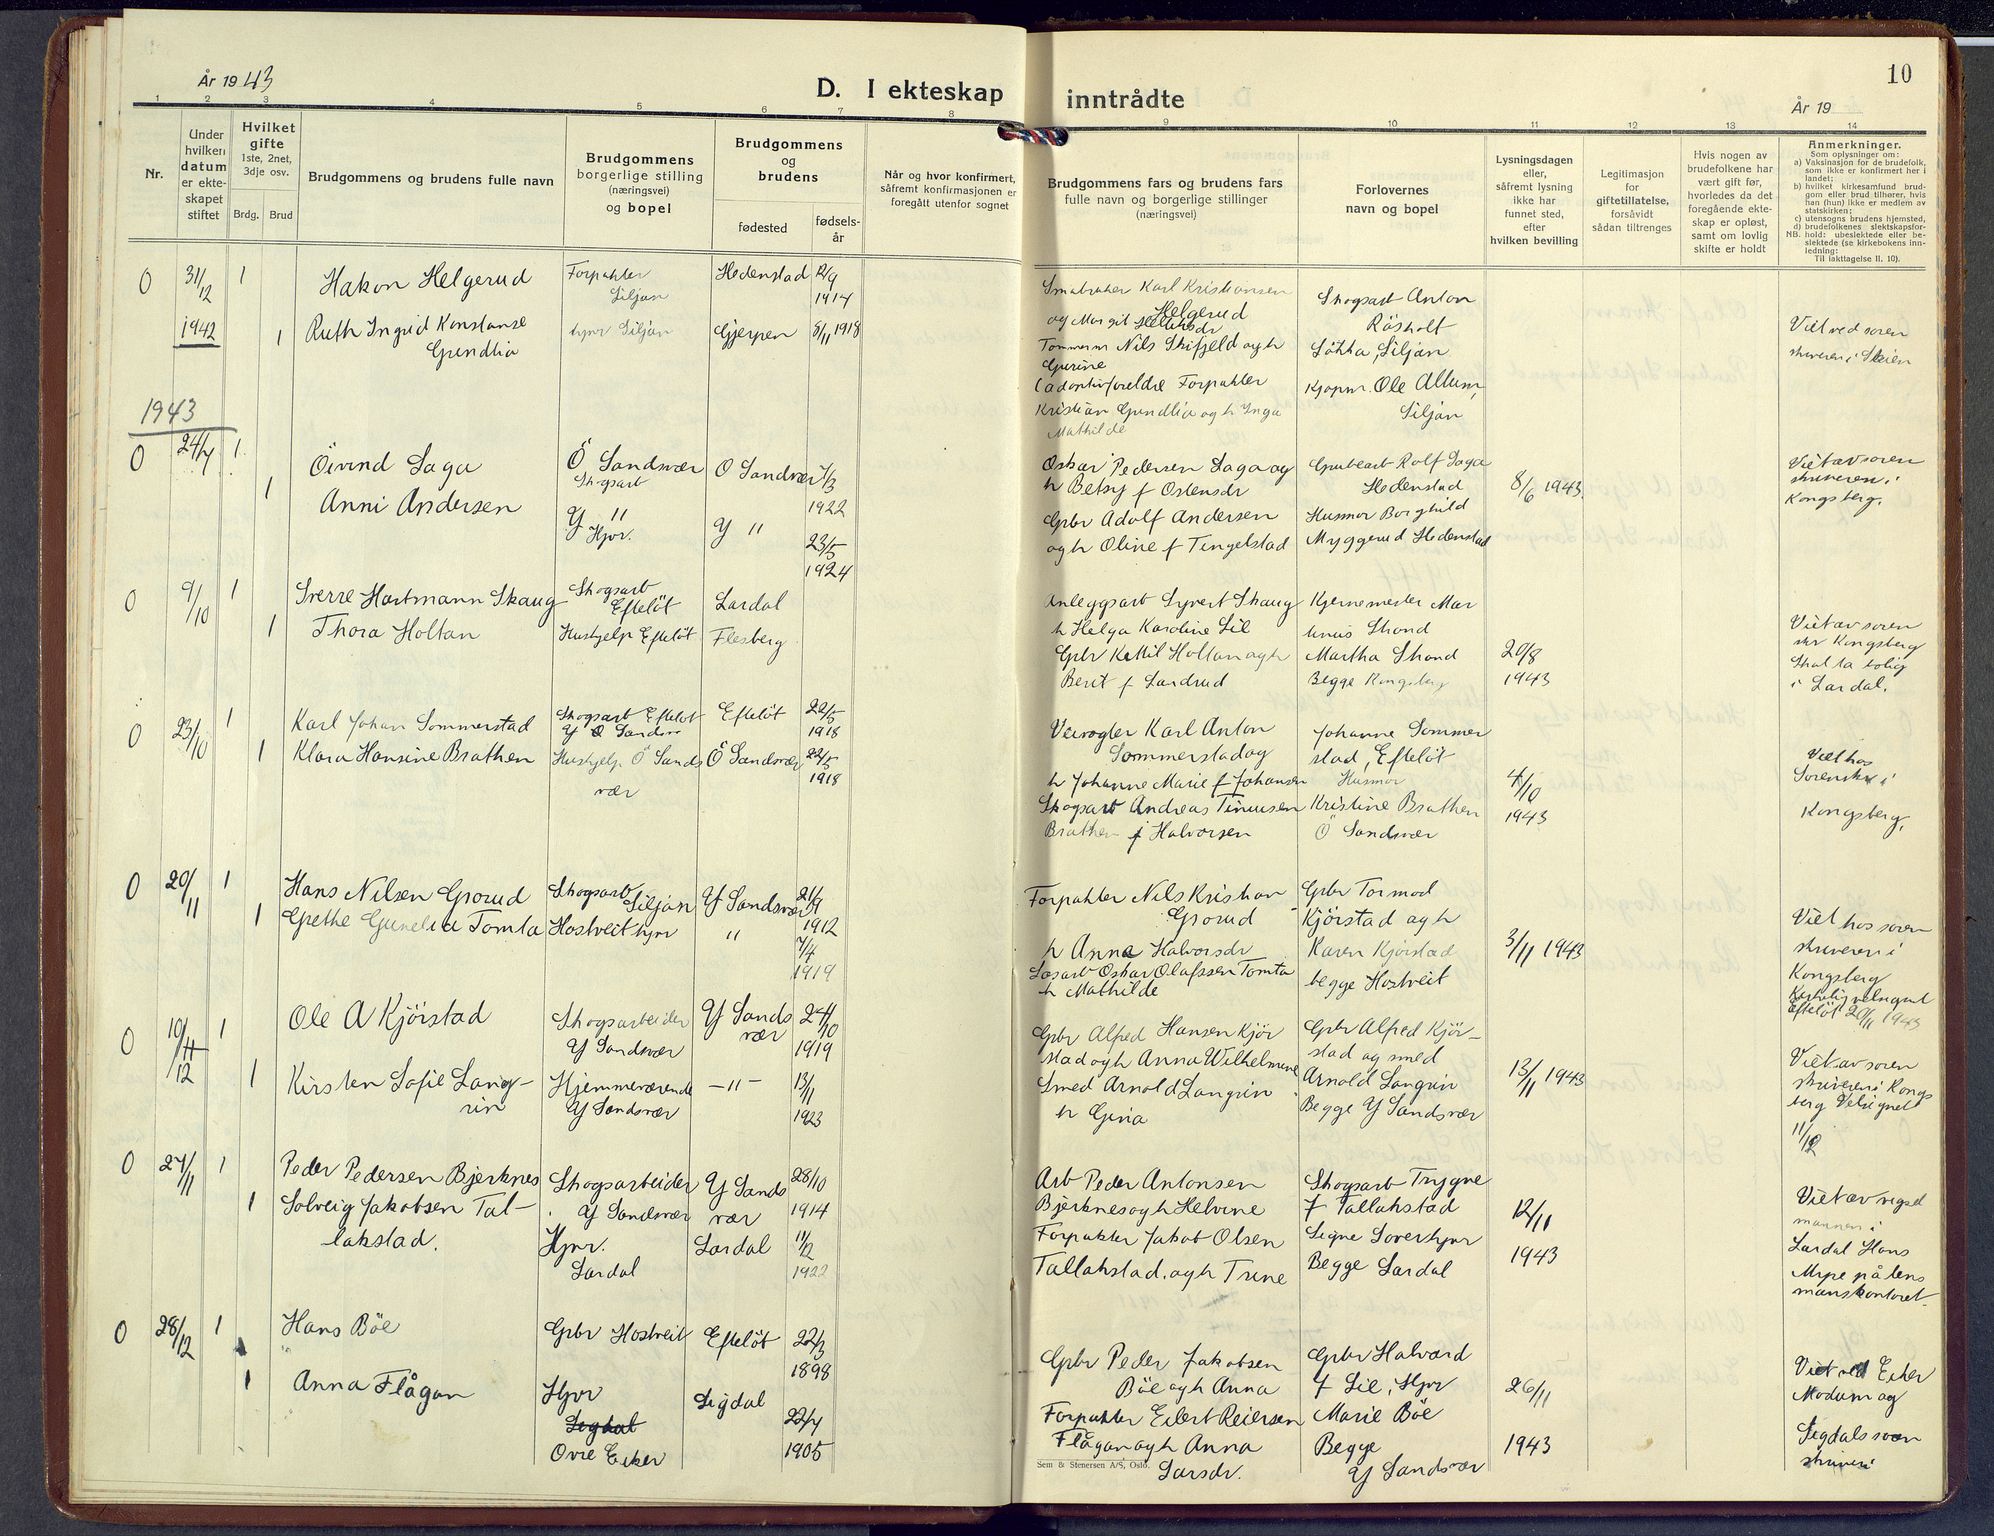 År 1943
D. I ekteskap
1 2 3 4 5 6 7 8
Nr.
Under hvilken datum er ekteskapet stiftet
Hvilket gifte
1ste, 2net, 3dje osv.
Brdg. Brud
Brudgommens og brudens fulle navn
Brudgommens borgerlige stilling (næringsvei) og bopel
Brudgommens og brudens
fødested
fødsels-år
Når og hvor konfirmert, såfremt konfirmasjonen er foregått utenfor sognet
0 31/12 1 Hakon Helgerud Forpakter Siljan Hedenstad 12/9 1914
1942 1 Ruth Ingrid Konstanse Grendlia hjvr Siljan Gjerpen 8/11 1918
1943
0 24/7 1 Öivind Saga Ö Sandsvær Skogsarb O Sandsvær 7/3 1922
1 Anni Andersen Y " Hjvr. Y " 23/5 1924
0 9/10 1 Sverre Hartmann Skaug Skogsarb Efteløt Lardal
1 Thora Holtan Hushjelp Efteløt Flesberg
0 23/10 1 Karl Johan Sommerstad Skogsarb Efteløt Y Sandsv Efteløt 22/5 1918
1 Klara Hansine Brathen Hushjelp Ö Sandsvær Ö Sandsvær 22/5 1918
0 20/11 1 Hans Nilsen Grorud Skogsarb Siljan Y Sandsvær 21/9 1912
1 Grethe Gunelia Tomta Hostveit hjvr " 7/4 1919
0 10/12 1 Ole A Kjörstad Skogsarbeider Y Sandsvær Y Sandsvær 24/10 1919
1 Kirsten Sofie Langrin Hjemmeværende Y Sandsvær -"- 13/11 1923
0 27/11 1 Peder Pedersen Bjerknes Skogsarbeider Y Sandsvær Y Sandsvær 28/10 1914
1 Solveig Jakobsen Tallakstad. Hjvr. Lardal Lardal 11/12 1922
0 28/12 1 Hans Böe Gpbr Hostveit Efteløt 22/3 1898
1 Anna Flågan Hjvr Sigdal Ovre Eiker Sigdal 22/4 1905
inntrådte
10
År 19
9 10 11 12 13 14
Brudgommens fars og brudens fars fulle navn og borgerlige stillinger (næringsvei)
Forlovernes navn og bopel
Lysningsdagen eller, såfremt lysning ikke har funnet sted, efter hvilken bevilling
Legitimasjon for giftetillatelse, forsåvidt sådan tiltrenges
Hvis nogen av brudefolkene har vært gift før, hvorledes da det foregående ekteskap er opløst, samt om lovlig skifte er holdt
Anmerkninger.
Som oplysninger om:
a) Vaksinasjon for de brudefolk, som ikke er konfirmert her i landet;
b) hvilket kirkesamfund brudgom eller brud tilhører, hvis han (hun) ikke er medlem av statskirken;
c) utensogns brudens hjemsted,
d) brudefolkenes slektskapsforhold: ubeslektede eller beslektede (se kirkebokens innledning:
NB. Til iakttagelse II. 10).
Småbruker Karl Kristiansen Helgerud
og Margit Helliksdr
Tommerm Nils Skifjeld og h Gurine
(adoptivforeldre Forpakter
Kristian Grendlia og h Inga
Mathilde
Skogsarb Anton
Røsholt
Løkka, Siljan
Kjøpm. Ole Allum,
Siljan
Viet ved soren
skriveren i Skien
Oskar Pedersen Saga og
h Betsy f Ostensdr
Gpbr Adolf Andersen
og h Oline f Tingelstad
Grubearb Rolf Saga
Hedenstad
Husmor Borghild
Myggerud Hedenstad
8/6 1943.
Viet av soren
skriveren i
Kongsberg.
Anleggsarb Syvert Skaug
h Helga Karoline Lil
Gpbr Kittil Holtan og h
Berit f Landrud
Kjernemester Mar
Strand
Martha Strand
Begge Kongsberg
20/8
1943
Viet av soren
skr Kongsberg
Skal ta bolig
i Lardal.
Veivogter Karl Anton
Sommerstad og
h Johanne Marie f Johansen
Skogsarb Andreas
Brathen f Halvorsen
Johanne Sommer
stad, Efteløt
Husmor
Kristine Brathen
Ö Sandsvær
4/10
1943
Viet hos
Sorenskr i
Kongsberg,
Forpakter Nils Kristian
Grorud
h Anna Halvorsdr
Oskar Olafssen Tomta
h Mathilde
Gpbr Tormod
Kjörstad og h
Karen Kjörstad
begge Hostveit
3/11 1943
Viet hos soren
skriveren i
Kongsberg
Kirkelig velsignet
Efteløt 20/11 1943
Gpbr Alfred Hansen Kjör
stad og h Anna Wilhelmine
Smed Arnold Langrin
h Gina
Gpbr Alfred Kjör-
stad og smed
Arnold Langrin
Begge Y Sandsvær
13/11 1943
Viet av soren
skriveren i Kongs
berg Velsignet
11/12
Arb Peder Antonsen
Bjerknes og h Helvine
Forpakter Jakob Olsen
Tallakstad. og h Trine
Skogsarb Trygve
f Tallakstad
Signe Sover hjvr
Begge Lardal
12/11
1943
Viet av vigsel
mannen i
Lardal Hans
Myre på lens
manskontoret.
Gpbr Peder Jakobsen
Böe og h Anna
Forpakter Eilert Reiersen
Flågan og h Anna
Larsdr.
Gpbr Halvard
f Lie, Hjvr
Marie Böe
Begge
Y Sandsvær
26/11
1943
Viet ved Eiker
Modum og
Sigdals soren
skriveri
Sem & Stenersen A/S, Oslo.